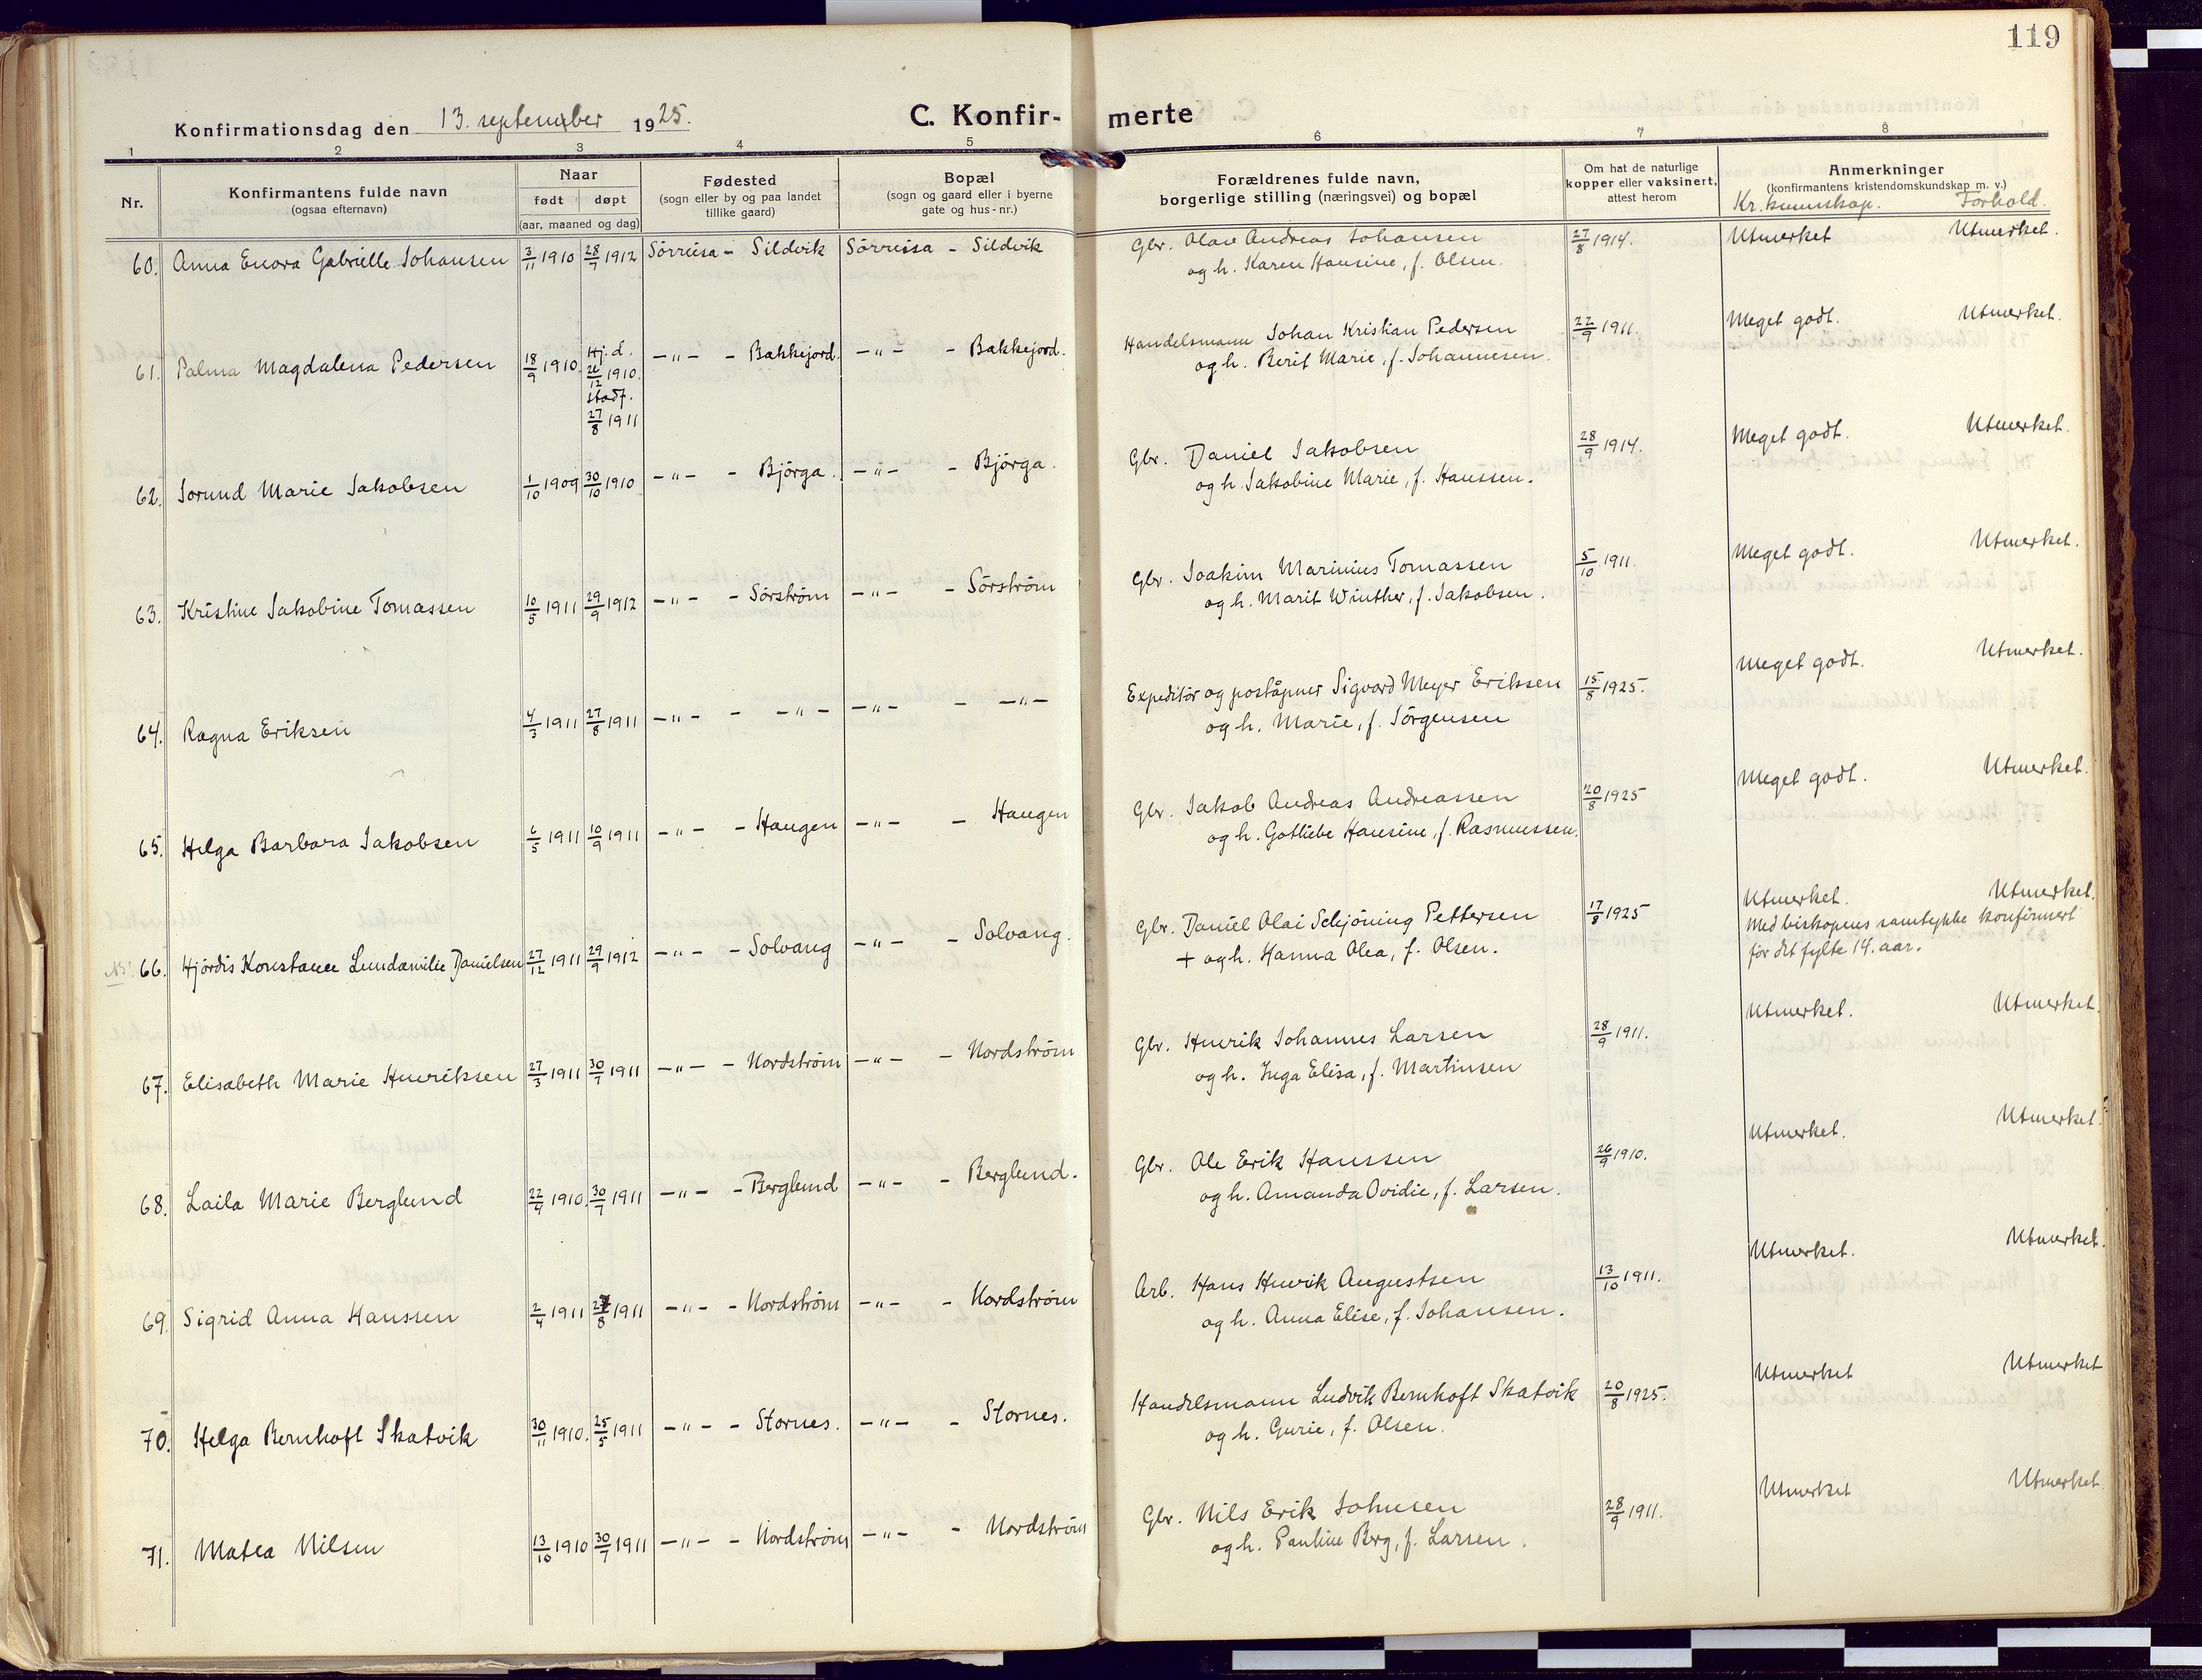 119
Konfirmationsdag den 13. september 1925.
C. Konfir- merte
1 2 3 4 5 6 7 8
Nr.
Konfirmantens fulde navn
(ogsaa efternavn)
Naar
født døpt
(aar, maaned og dag)
Fødested
(sogn eller by og paa landet
tillike gaard)
Bopæl
(sogn og gaard eller i byerne
gate og hus-nr.)
Forældrenes fulde navn,
borgerlige stilling (næringsvei) og bopæl
Om hat de naturlige
kopper eller vaksinert,
attest herom
Anmerkninger
(konfirmantens kristendomskundskap m. v.)
Kr. kunnskap. Forhold.
60. Anna Enora Gabrielle Johansen 3/11 1910 28/7 1912 Sörreisa - Sildvik Sörreisa - Sildvik Gbr. Olav Andreas Johansen 27/8 1914. Utmerket Utmerket.
og h. Karen Hansine, f. Olsen.
61. Palma Magdalena Pedersen 18/9 1910. Hj.d. 26/12 1910. stadf. 27/8 1911 -"- - Bakkejord. -"- - Bakkejord. Handelsmann Johan Kristian Pedersen 22/9 1911. Meget godt. Utmerket.
og h. Berit Marie, f. Johannesen.
62. Jorund Marie Jakobsen 1/10 1909 30/10 1910 -"- - Björga. -"- - Björga. Gbr. Daniel Jakobsen 28/9 1914. Meget godt. Utmerket.
og h. Jakobine Marie, f. Hanssen.
63. Kristine Jakobine Tomassen 10/5 1911 29/9 1912 -"- - Sörström -"- - Sörström Gbr. Joakim Marinius Tomassen 5/10 1911. Meget godt. Utmerket.
og h. Marit Winther, f. Jakobsen.
64. Ragna Eriksen 4/3 1911 27/8 1911 -"- - -"- -"- - -"- Expeditör og poståpner Sigvard Meyer Eriksen 15/8 1925. Meget godt. Utmerket.
og h. Marie, f. Jörgensen
65. Helga Barbara Jakobsen 6/5 1911 10/9 1911 -"- - Haugen -"- - Haugen Gbr. Jakob Andreas Andreassen 20/8 1925 Meget godt. Utmerket.
og h. Gotliebe Hansine, f. Rasmussen.
66. Hjördis Konstance Lundamilie Danielsen 27/12 1911 29/9 1912 -"- - Solvang -"- - Solvang. Gbr. Daniel Olai Schjöning Pettersen 17/8 1925 Utmerket. Utmerket.
+ og h. Hanna Olea, f. Olsen. Med biskopens samtykke konfirmert
för det fylte 14. aar.
67. Elisabeth Marie Henriksen 27/3 1911 30/7 1911 -"- - Nordström -"- - Nordström Gbr. Henrik Johannes Larsen 28/9 1911. Utmerket. Utmerket.
og h. Inga Elisa, f. Martinsen
68. Laila Marie Berglund 22/4 1910. 30/7 1911 -"- - Berglund -"- - Berglund. Gbr. Ole Erik Hanssen 26/9 1910. Utmerket. Utmerket.
og h. Amanda Ovidie, f. Larsen.
69. Sigrid Anna Hanssen 2/4 1911 27/8 1911 -"- - Nordström -"- - Nordström Arb. Hans Henrik Augustsen 13/10 1911. Utmerket. Utmerket.
og h. Anna Elise, f. Johansen.
70. Helga Bernhoft Skatvik 30/11 1910. 25/5 1911 -"- - Stornes. -"- - Stornes. Handelsmann Ludvik Bernhoft Skatvik 20/8 1925. Utmerket Utmerket
og h. Gurie, f. Olsen.
71. Matea Nilsen 13/10 1910 30/7 1911 -"- - Nordström -"- - Nordström Gbr. Nils Erik Johnsen 28/9 1911. Utmerket Utmerket.
og h. Pauline Berg, f. Larsen.